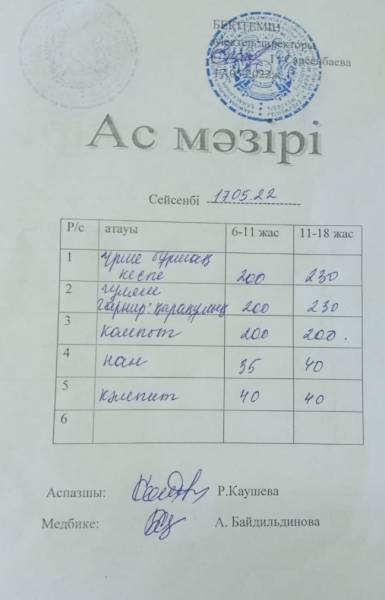 БЕКІТЕМІН
Мектеп директоры
Г. Сәрсенбаева
17.05.2022ж
Ас мәзірі
Сейсенбі 17.05.22
Р/с атауы 6-11 жас 11-18 жас
1 Үрме бұршақ
кеспе 200 230
2 гуляш
гарнир: қарақұмық 200 230
3 компот 200 200.
4 нан 35 40
5 кәмпит 40 40
6
Аспазшы: Р.Каушева
Медбике: А. Байдильдинова